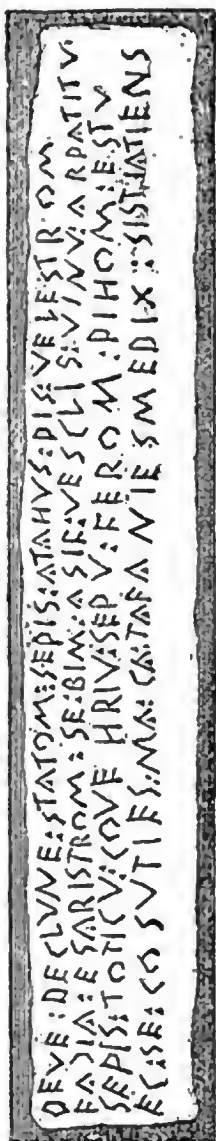 DEVE : DECLVNE : STATOM : SEPIS : ATAHVS : PIS : VELESTROM
FAƆIA : ESARISTROM : SE : BIM : ASIF : VESCLIS : VINV : ARPATITV
SEPIS : TOTICV : COVEHRIV : SEPV : FEROM : PIHOM : ESTV
EC : SE : COSVTIES : MA : CA : TAFANIES MEDIX : SISTIATIENS